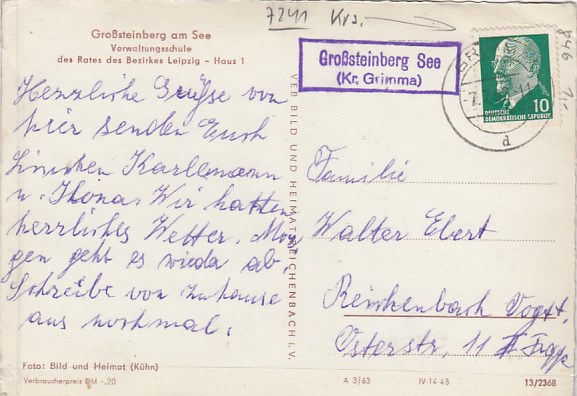 7241 Krs.
Großsteinberg am See
Verwaltungsschule
des Rates des Bezirkes Leipzig - Haus 1
Großsteinberg See
(Kr. Grimma)
10
DEUTSCHE
DEMOKRATISCHE REPUBLIK
d
846
Herzliche Grüße von
hier senden Euch
Linchen Karlemann
u. Ilona. Wir hatten
herrliches Wetter. Mor
gen geht es wieda ab
Schreibe von Zuhause
aus nochmal.
VEB BILD UND HEIMAT REICHENBACH i. V.
Familie
Walter Ebert
Reichenbach Vogt.
Osterstr. 11 II
Foto: Bild und Heimat (Kühn)
Verbraucherpreis DM -.20
A 3/63 IV-14-45 13/2368